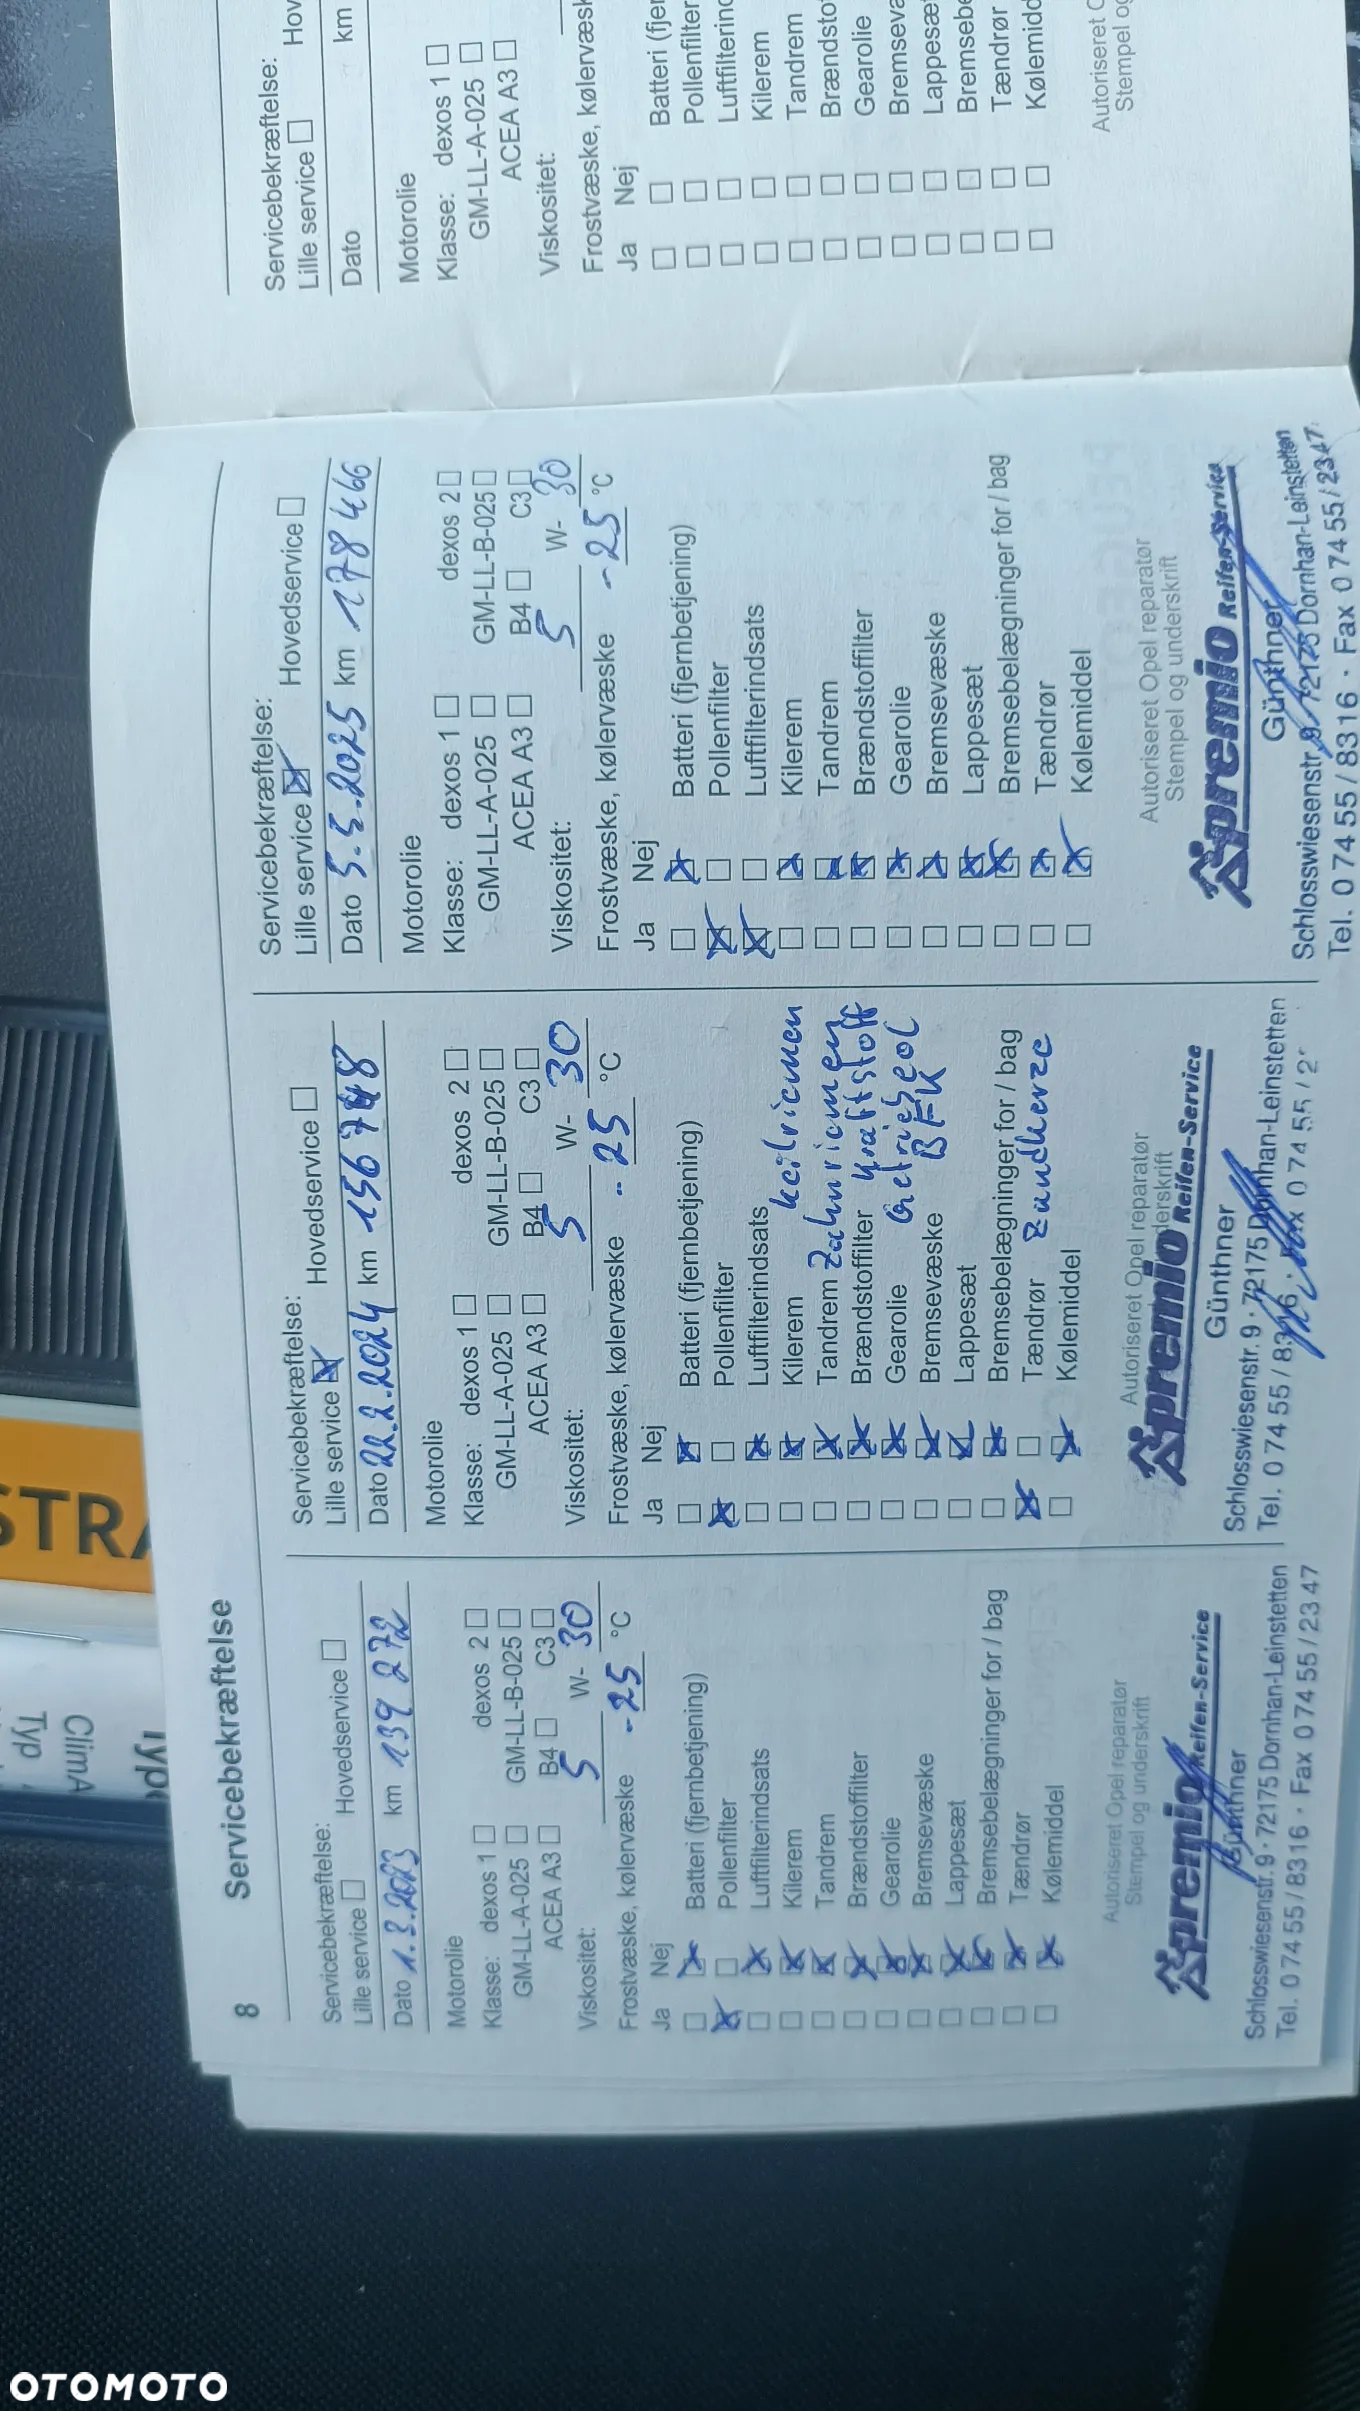 8 Servicebekræftelse
Servicebekræftelse:
Lille service Hovedservice
Dato 1.3.2023 km 139 272
Motorolie
Klasse: dexos 1 dexos 2
GM-LL-A-025 GM-LL-B-025
ACEA A3 B4 C3
Viskositet: 5 W- 30
Frostvæske, kølervæske -25 °C
Ja Nej
Batteri (fjernbetjening)
Pollenfilter
Luftfilterindsats
Kilerem
Tandrem
Brændstoffilter
Gearolie
Bremsevæske
Lappesæt
Bremsebelægninger for / bag
Tændrør
Kølemiddel
Autoriseret Opel reparatør
Stempel og underskrift
premio Reifen-Service
Günthner
Schlosswiesenstr. 9 · 72175 Dornhan-Leinstetten
Tel. 0 74 55 / 83 16 · Fax 0 74 55 / 23 47
Servicebekræftelse:
Lille service Hovedservice
Dato 22.2.2024 km 156 748
Motorolie
Klasse: dexos 1 dexos 2
GM-LL-A-025 GM-LL-B-025
ACEA A3 B4 C3
Viskositet: 5 W- 30
Frostvæske, kølervæske -25 °C
Ja Nej
Batteri (fjernbetjening)
Pollenfilter
Luftfilterindsats
Kilerem Keilriemen
Tandrem Zahnriemen
Brændstoffilter Kraftstoff
Gearolie Getriebeöl
Bremsevæske BFK
Lappesæt
Bremsebelægninger for / bag
Tændrør Zündkerze
Kølemiddel
Autoriseret Opel reparatør
derskrift
premio Reifen-Service
Günthner
Schlosswiesenstr. 9 · 72175 Dornhan-Leinstetten
Tel. 0 74 55 / 83 16 · Fax 0 74 55 / 2
Servicebekræftelse:
Lille service Hovedservice
Dato 5.5.2025 km 178 466
Motorolie
Klasse: dexos 1 dexos 2
GM-LL-A-025 GM-LL-B-025
ACEA A3 B4 C3
Viskositet: 5 W- 30
Frostvæske, kølervæske -25 °C
Ja Nej
Batteri (fjernbetjening)
Pollenfilter
Luftfilterindsats
Kilerem
Tandrem
Brændstoffilter
Gearolie
Bremsevæske
Lappesæt
Bremsebelægninger for / bag
Tændrør
Kølemiddel
Autoriseret Opel reparatør
Stempel og underskrift
premio Reifen-Service
Günthner
Schlosswiesenstr. 9 72175 Dornhan-Leinstetten
Tel. 0 74 55 / 83 16 · Fax 0 74 55 / 23 47
Servicebekræftelse:
Lille service Hov
Dato km
Motorolie
Klasse: dexos 1
GM-LL-A-025
ACEA A3
Viskositet:
Frostvæske, kølervæsk
Ja Nej
Batteri (fjer
Pollenfilter
Luftfilterind
Kilerem
Tandrem
Brændsto
Gearolie
Bremseva
Lappesæt
Bremsebe
Tændrør
Kølemidd
Autoriseret O
Stempel og
STRA
Typ
ClimA
Type
OTOMOTO